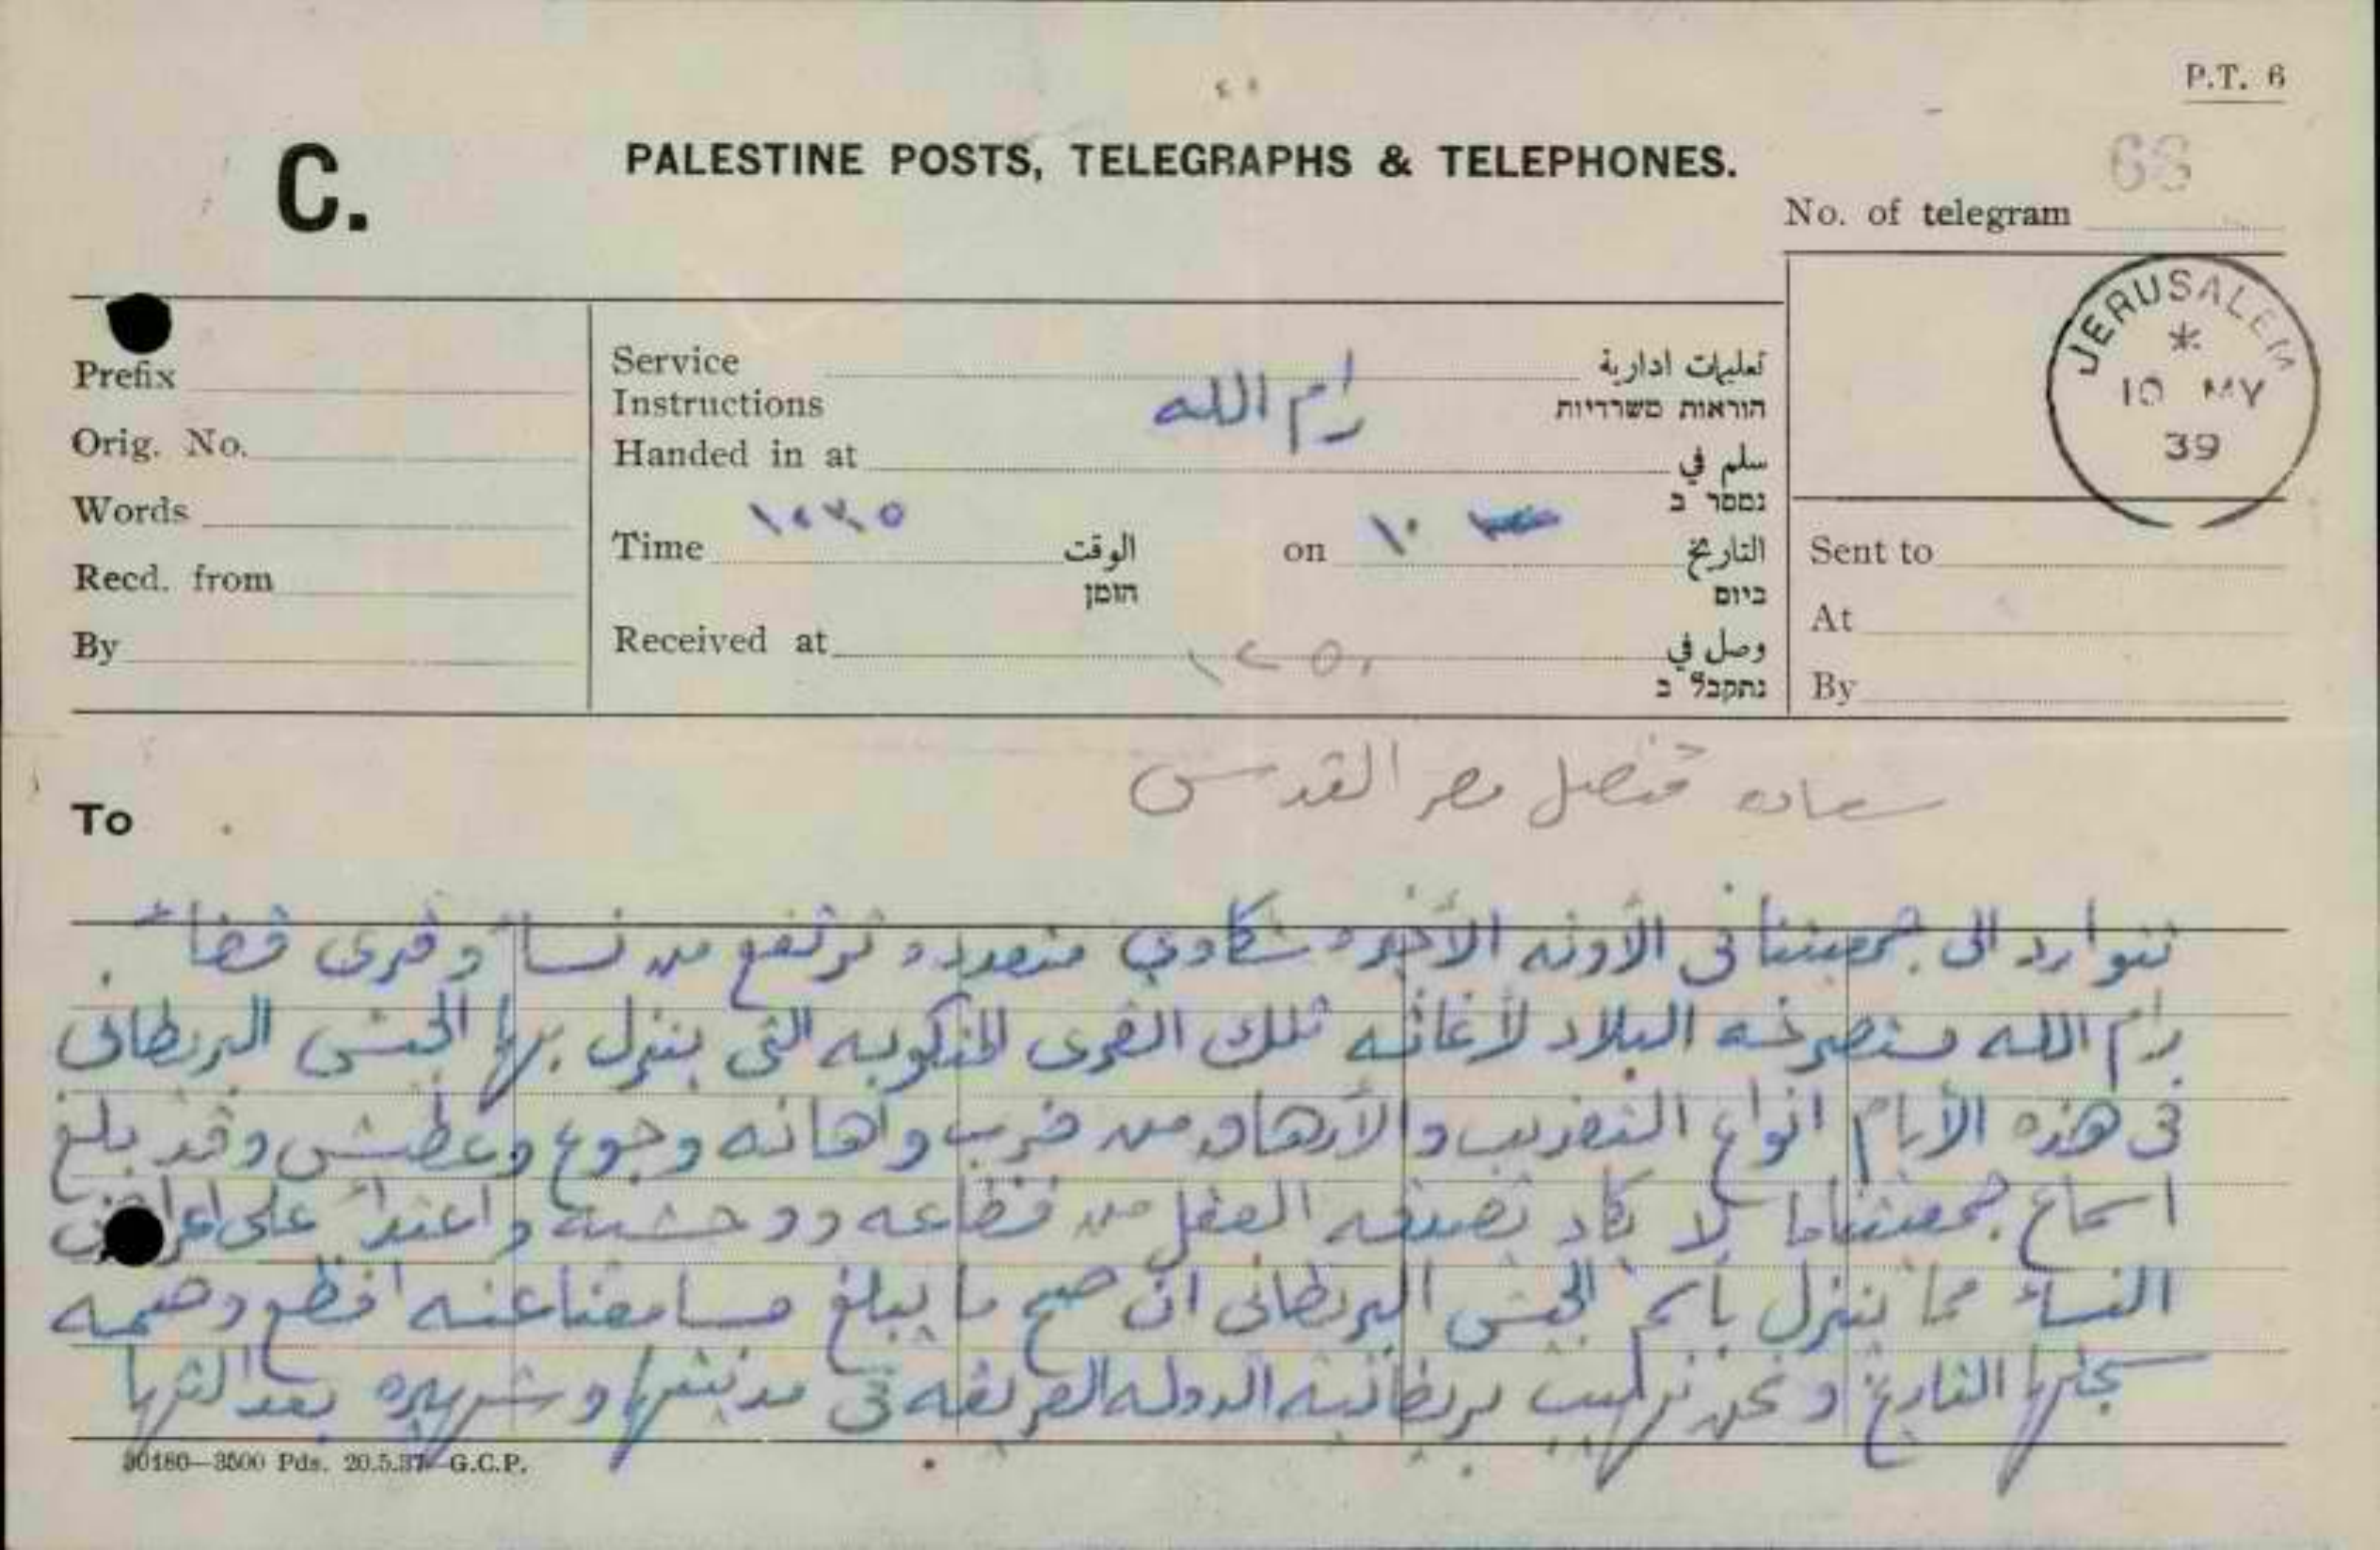 P.T. 6
C.
PALESTINE POSTS, TELEGRAPHS & TELEPHONES.
No. of telegram 68
Prefix
Orig. No.
Words
Recd. from
By
Service Instructions
تعليمات ادارية
הוראות משרדיות
Handed in at رام الله سلم في
נמסר ב
Time الوقت
הזמן
on ١٠ التاريخ
ביום
Received at ١٢٥٠ وصل في
נתקבל ב
JERUSALEM
*
10 MY
39
Sent to
At
By
To
سعاده قنصل مصر القدس
تتوارد الى جمعيتنا فى الأونه الأخيره شكاوي متعدده ترتفع من نساء وقرى قضاء
رام الله مستصرخه البلاد لأغاثه تلك القرى المنكوبه التى ينزل بها الجيش البريطانى
فى هذه الأيام انواع التعذيب والأرهاق من ضرب وأهانه وجوع وعطش وقد بلغ
اسماع جمعيتنا ما لا يكاد تصدقه العقل من فظاعه ووحشية واعتداء على اعراض
النساء مما تنزل بأسم الجيش البريطانى ان صح ما يبلغ مسامعنا عنه افظع وصمه
سجلها التاريخ ونحن نهيب بريطانية الدوله العريقه فى مدنيتها وشهيره بعدالتها
30180—3500 Pds. 20.5.37—G.C.P.